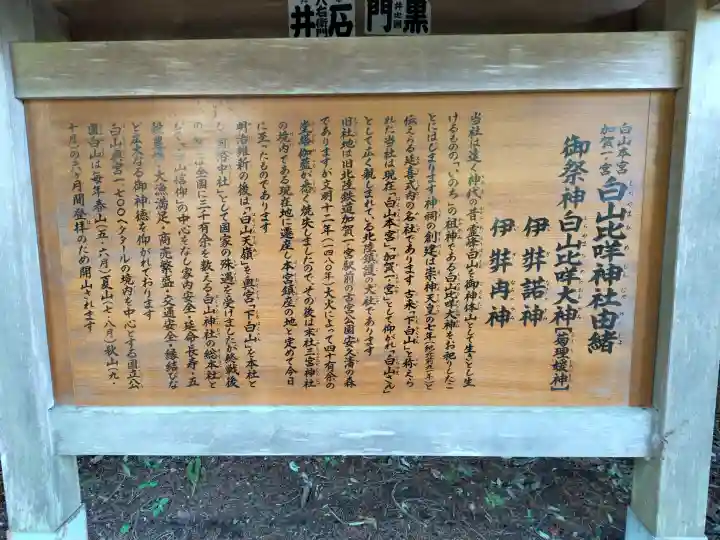 石
井
黒
井
門
白山本宮
加賀一ノ宮
白山比咩神社由緒
御祭神 白山比咩大神[菊理媛神]
伊弉諾神
伊弉冉神
当社は遠く神代の昔、霊峰白山を御神体山として生きとし生
けるものの「いのち」の祖神である白山比咩大神をお祀りしたこ
とにはじまります 神祠の創建は崇神天皇の七年(紀元前九一年)と
伝えらる延喜式内の名社であります 古来「下白山」と称えら
れた当社は現在「白山本宮」「加賀一ノ宮」として仰がれ「白山さん」
として広く親しまれている北陸鎮護の大社であります
旧社地は旧北陸鉄道加賀一ノ宮駅前の古宮公園安久濤の森
でありますが文明十二年(一四八〇年)大火によって四十有余の
堂塔伽藍が悉く焼失しましたので、その後は末社三宮神社
の境内である現在地に遷座し本宮鎮座の地と定めて今日
に至ったものであります
明治維新の後は「白山天嶺」を「奥宮」「下白山」を本社と
「国幣中社」として国家の殊遇を享けましたが終戦後
は全国に三千有余を数える白山神社の総本社と
「白山信仰」の中心をなし家内安全・延命長寿・五
穀豊穣・大漁満足・商売繁盛・交通安全・縁結びな
ど広大なる御神徳を仰がれております
白山奥宮一七〇〇ヘクタールの境内を中心とする国立公
園白山は毎年春山(五・六月)夏山(七・八月)秋山(九・
十月)の六ヶ月間登拝のため開山されます